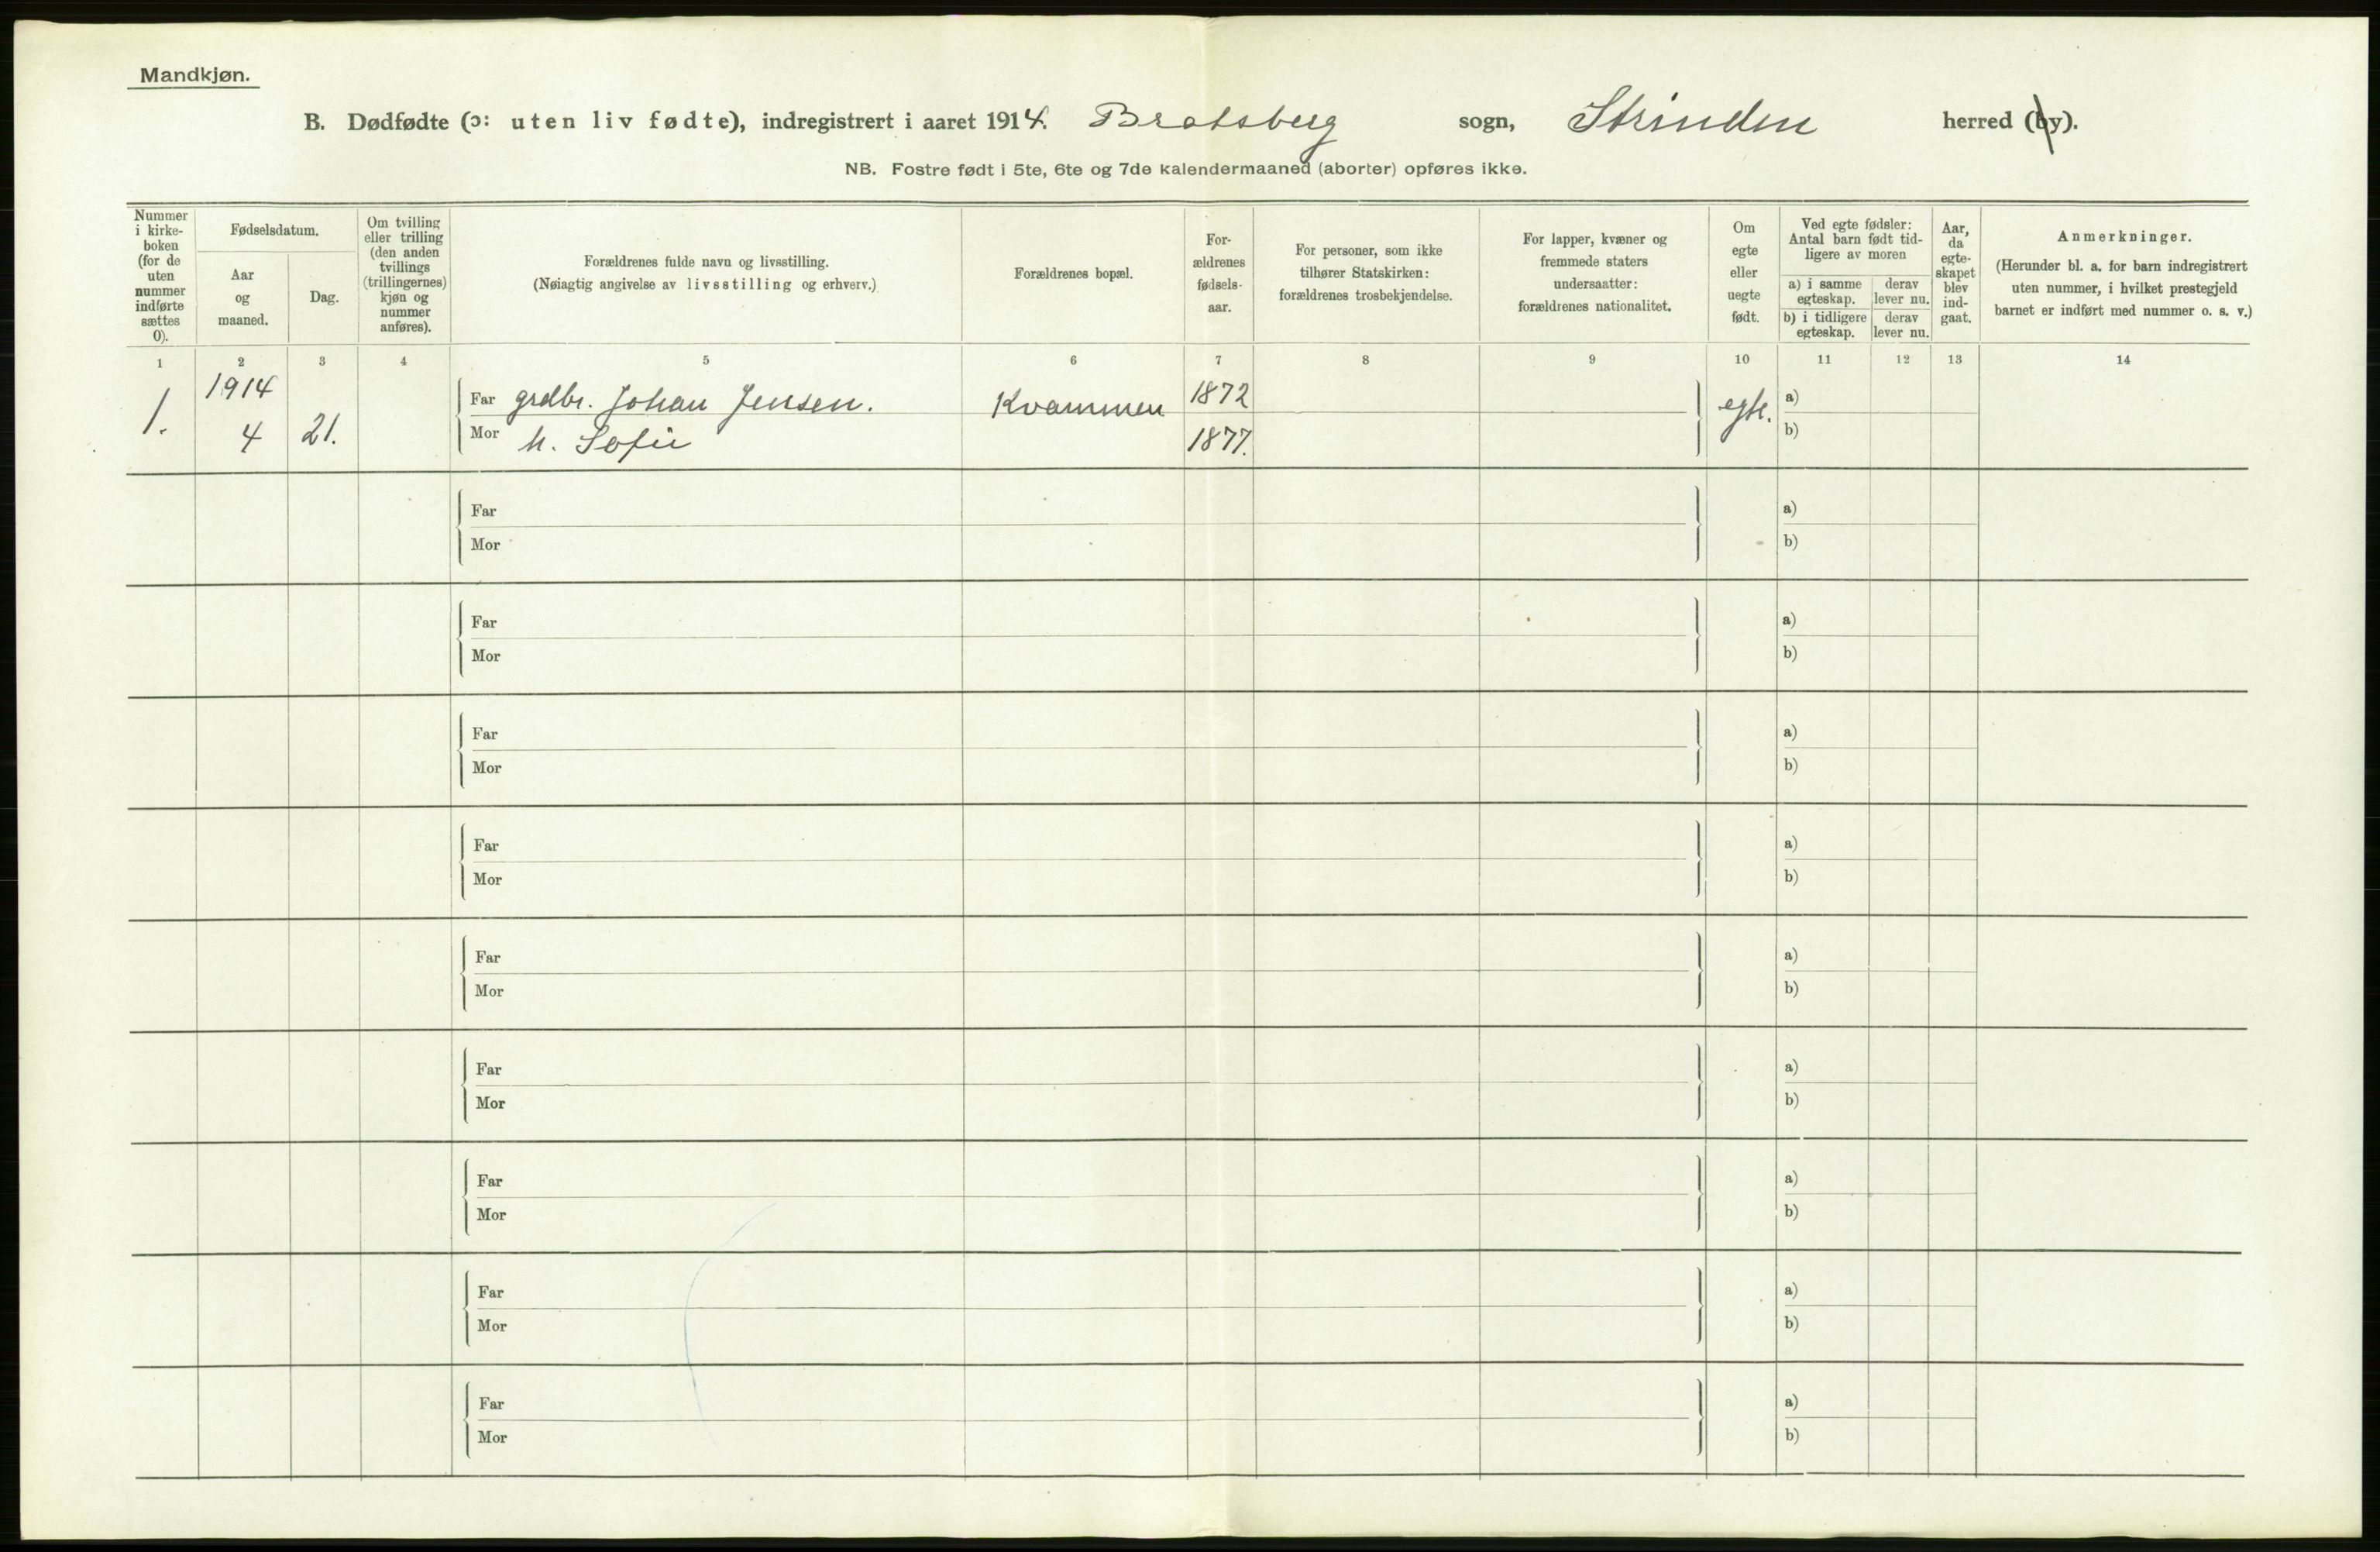 Mandkjøn.
B. Dødfødte (ɔ: uten liv fødte), indregistrert i aaret 1914. Bratsberg sogn, Strinden herred (by).
NB. Fostre født i 5te, 6te og 7de kalendermaaned (aborter) opføres ikke.
Nummer
i kirke-
boken
(for de
uten
nummer
indførte
sættes
0).
Fødselsdatum.
Aar
og
maaned.
Dag.
Om tvilling
eller trilling
(den anden
tvillings
(trillingernes)
kjøn og
nummer
anføres).
Forældrenes fulde navn og livsstilling.
(Nøiagtig angivelse av livsstilling og erhverv.)
Forældrenes bopæl.
For-
ældrenes
fødsels-
aar.
For personer, som ikke
tilhører Statskirken:
forældrenes trosbekjendelse.
For lapper, kvæner og
fremmede staters
undersaatter:
forældrenes nationalitet.
Om
egte
eller
uegte
født.
Ved egte fødsler:
Antal barn født tid-
ligere av moren
a) i samme
egteskap.
derav
lever nu.
b) i tidligere
egteskap.
derav
lever nu.
Aar,
da
egte-
skapet
blev
ind-
gaat.
Anmerkninger.
(Herunder bl. a. for barn indregistrert
uten nummer, i hvilket prestegjeld
barnet er indført med nummer o. s. v.)
1 2 3 4 5 6 7 8 9 10 11 12 13 14
1. 1914 4 21. Far grdbr. Johan Jensen. Kvammen 1872 egte. a)
Mor h. Sofie 1877. b)
Far a)
Mor b)
Far a)
Mor b)
Far a)
Mor b)
Far a)
Mor b)
Far a)
Mor b)
Far a)
Mor b)
Far a)
Mor b)
Far a)
Mor b)
Far a)
Mor b)